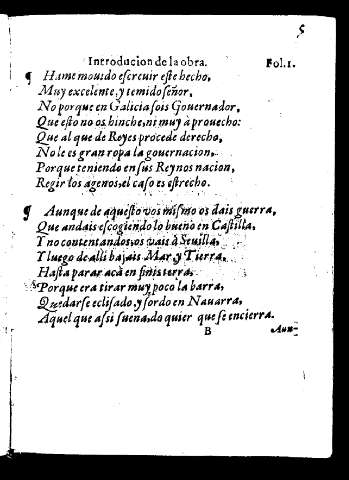 5
Introducion de la obra. Fol.1.
¶ Hame mouido escreuir este hecho,
Muy excelente, y temido señor,
No porque en Galicia sois Gouernador,
Que esto no os hinche, ni muy à prouecho:
Que al que de Reyes procede derecho,
No le es gran ropa la gouernacion,
Porque teniendo en sus Reynos nacion,
Regir los agenos, el caso es estrecho.
¶ Aunque de aquesto vos mismo os dais guerra,
Que andais escogiendo lo bueno en Castilla,
Y no contentandos, os vais à Seuilla,
Y luego de alli bajais Mar, y Tierra,
Hasta parar acà en finisterra,
Porque era tirar muy poco la barra,
Quedarse eclisado, y sordo en Nauarra,
Aquel que assi suena, do quier que se encierra.
B Aun-